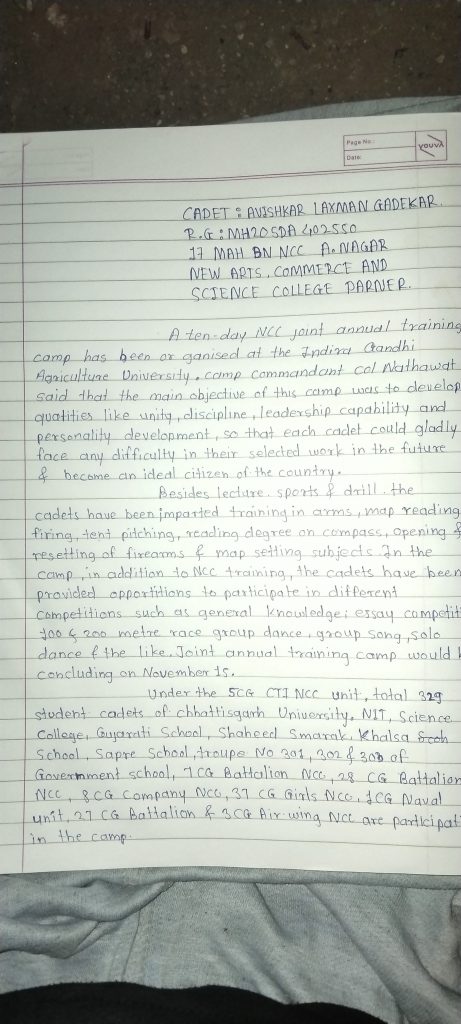 Page No.:
Date:
YOUVA
CADET : AVISHKAR LAXMAN GADEKAR.
R.G : MH20SDA 402550
17 MAH BN NCC A. NAGAR
NEW ARTS, COMMERCE AND
SCIENCE COLLEGE PARNER.
A ten-day NCC joint annual training
camp has been or ganised at the Indira Gandhi
Agriculture University, camp commandant col Nathawat
said that the main objective of this camp was to develop
quatities like unity, discipline, leadership capability and
personality development, so that each cadet could gladly
face any difficulty in their selected work in the future
& become an ideal citizen of the country.
Besides lecture. sports & drill. the
cadets have been imparted training in arms, map reading
firing, tent pitching, reading degree on compass, opening &
resetting of firearms & map setting subjects. In the
camp, in addition to NCC training, the cadets have been
provided opportitions to participate in different
competitions such as general knowledge; essay competit
100 & 200 metre race group dance, group song, solo
dance & the like. Joint annual training camp would
concluding on November 15.
Under the 5CG CTI NCC unit, total 329
student cadets of chhattisgarh University, NIT, Science
College, Gujarati School, Shaheed Smarak, Khalsa
School, Sapre School, troupe No 301, 302 & 303 of
Government school, 7 CG Battalion NCC, 28 CG Battalion
NCC, 8 CG Company NCC, 37 CG Girls NCC, 1CG Naval
unit, 27 CG Battalion & 3 CG Air-wing NCC are participat
in the camp.